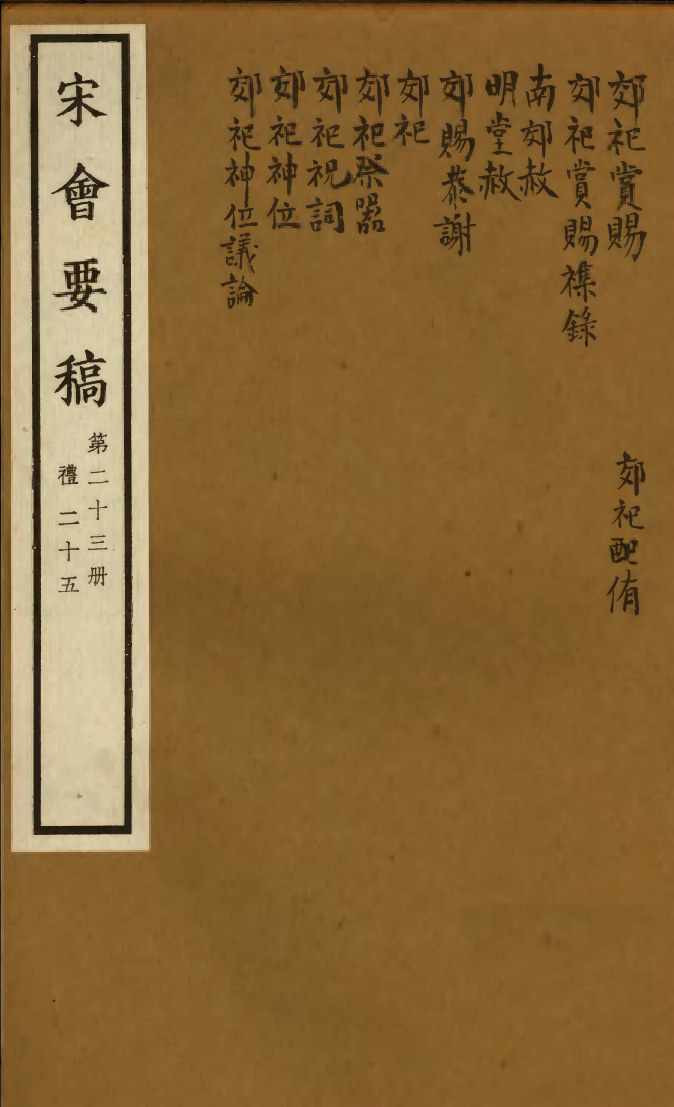 郊祀賞賜
郊祀配侑
郊祀賞賜襍錄
南郊赦
明堂赦
郊賜恭謝
郊祀
郊祀祭器
郊祀祝詞
郊祀神位
郊祀神位議論
宋會要稿
第二十三册
禮二十五